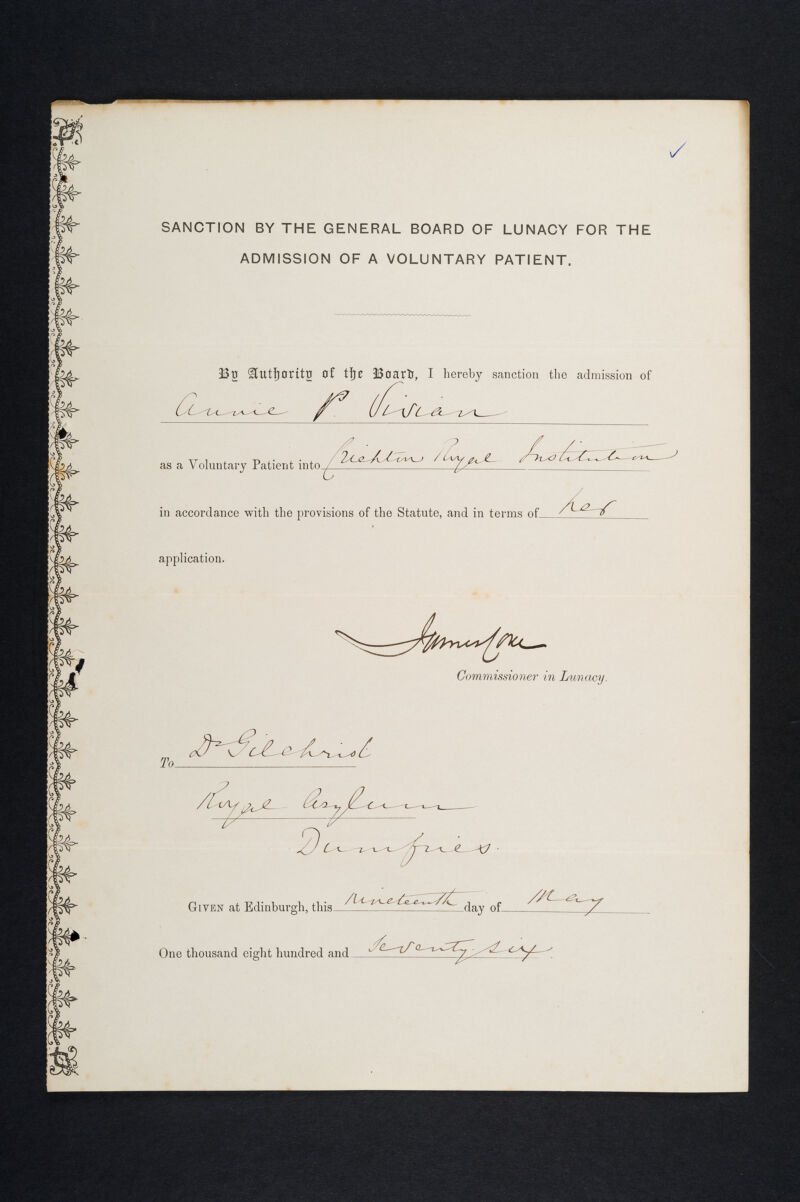 SANCTION BY THE GENERAL BOARD OF LUNACY FOR THE
ADMISSION OF A VOLUNTARY PATIENT.
By Authority of the Board, I hereby sanction the admission of
Annie P. Vivian
as a Voluntary Patient into Crichton Royal Institution
in accordance with the provisions of the Statute, and in terms of her
application.
James Coxe
Commissioner in Lunacy.
To Dr Gilchrist
Royal Asylum
Dumfries.
GIVEN at Edinburgh, this Nineteenth day of May
One thousand eight hundred and Seventy-six.